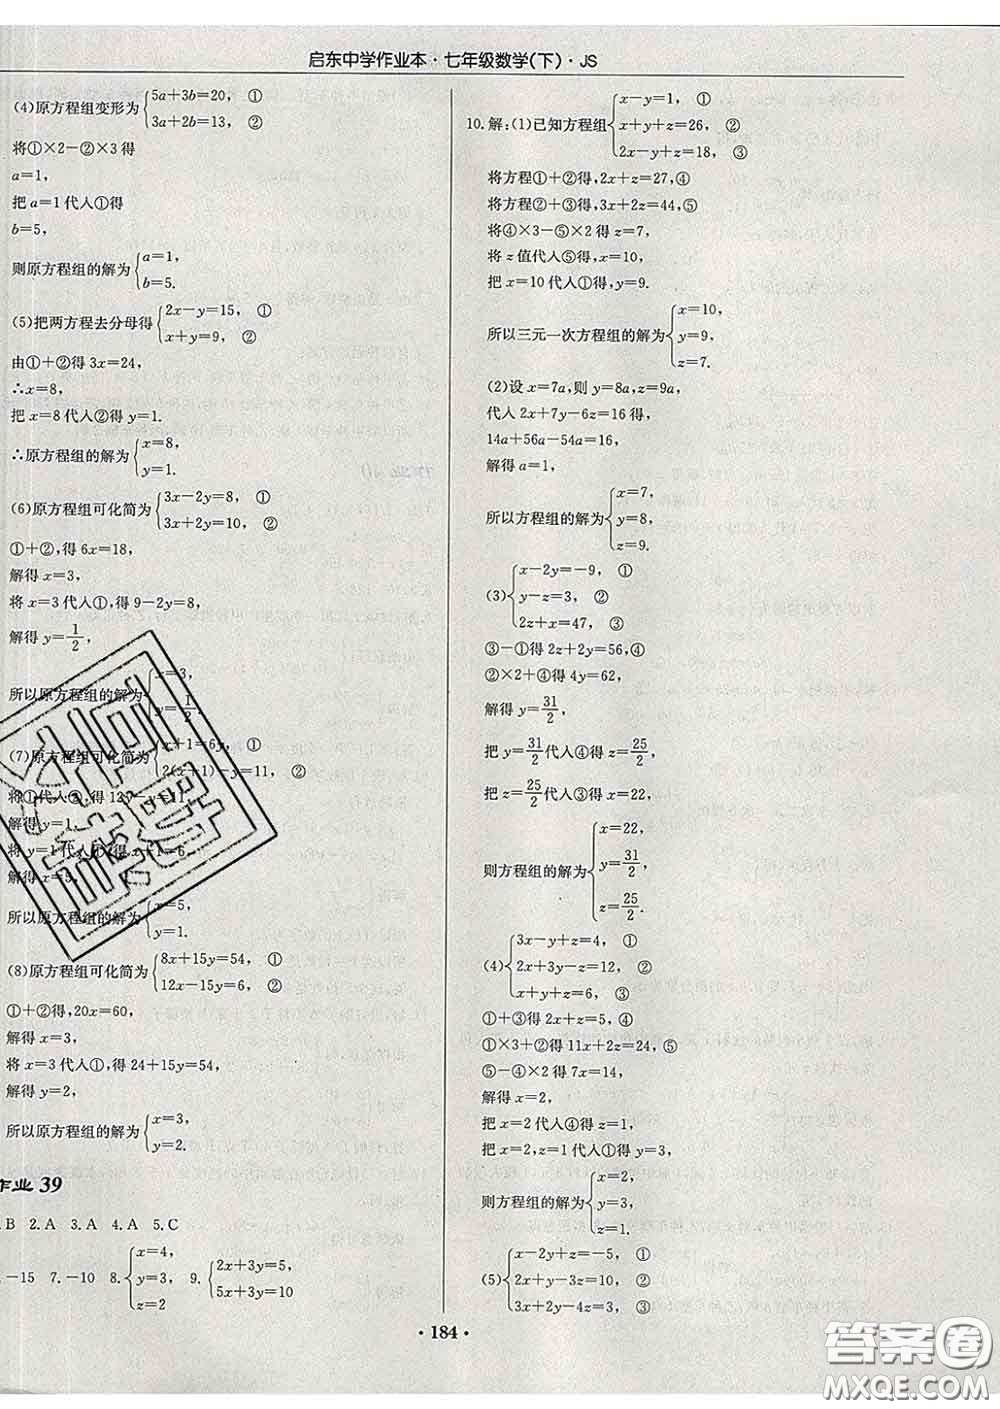 启东中学作业本·七年级数学(下)·JS
(4)原方程组变形为{5a+3b=20, ①
3a+2b=13, ②
将①×2-②×3得
a=1,
把a=1代人①得
b=5,
则原方程组的解为{a=1,
b=5.
(5)把两方程去分母得{2x-y=15, ①
x+y=9, ②
由①+②得3x=24,
∴x=8,
把x=8代人②得y=1.
∴原方程组的解为{x=8,
y=1.
(6)原方程组可化简为{3x-2y=8, ①
3x+2y=10, ②
①+②,得6x=18,
解得x=3,
将x=3代人①,得9-2y=8,
解得y=1/2,
所以原方程组的解为{x=3,
y=1/2.
(7)原方程组可化简为{x+1=6y, ①
2(x+1)-y=11, ②
将①代人②,得12y-y=11,
解得y=1,
将y=1代人①,得x+1=6,
解得x=5,
所以原方程组的解为{x=5,
y=1.
(8)原方程组可化简为{8x+15y=54, ①
12x-15y=6, ②
①+②得,20x=60,
解得x=3,
将x=3代人①,得24+15y=54,
解得y=2,
所以原方程组的解为{x=3,
y=2.
作业39
B 2.A 3.A 4.A 5.C
-15 7.-10 8.{x=4,
y=3,
z=2
9.{2x+3y=5,
5x+3y=10
10.解:(1)已知方程组{x-y=1, ①
x+y+z=26, ②
2x-y+z=18, ③
将方程①+②得,2x+z=27,④
将方程②+③得,3x+2z=44,⑤
将④×3-⑤×2得z=7,
将z值代人⑤得,x=10,
把x=10代人①得,y=9.
所以三元一次方程组的解为{x=10,
y=9,
z=7.
(2)设x=7a,则y=8a,z=9a,
代人2x+7y-6z=16得,
14a+56a-54a=16,
解得a=1,
所以方程组的解为{x=7,
y=8,
z=9.
(3){x-2y=-9, ①
y-z=3, ②
2z+x=47, ③
③-①得2z+2y=56,④
②×2+④得4y=62,
解得y=31/2,
把y=31/2代人④得z=25/2,
把z=25/2代人③得x=22,
则方程组的解为{x=22,
y=31/2,
z=25/2.
(4){3x-y+z=4, ①
2x+3y-z=12, ②
x+y+z=6, ③
①+③得2x+z=5,④
①×3+②得11x+2z=24,⑤
⑤-④×2得7x=14,
解得x=2,
把x=2代人④得z=1,
把x=2,z=1代人①得y=3,
则方程组的解为{x=2,
y=3,
z=1.
(5){x-2y+z=-5, ①
2x+y-3z=10, ②
3x+4z+2z=-5, ③
·184·
答案圈
MXQE.COM